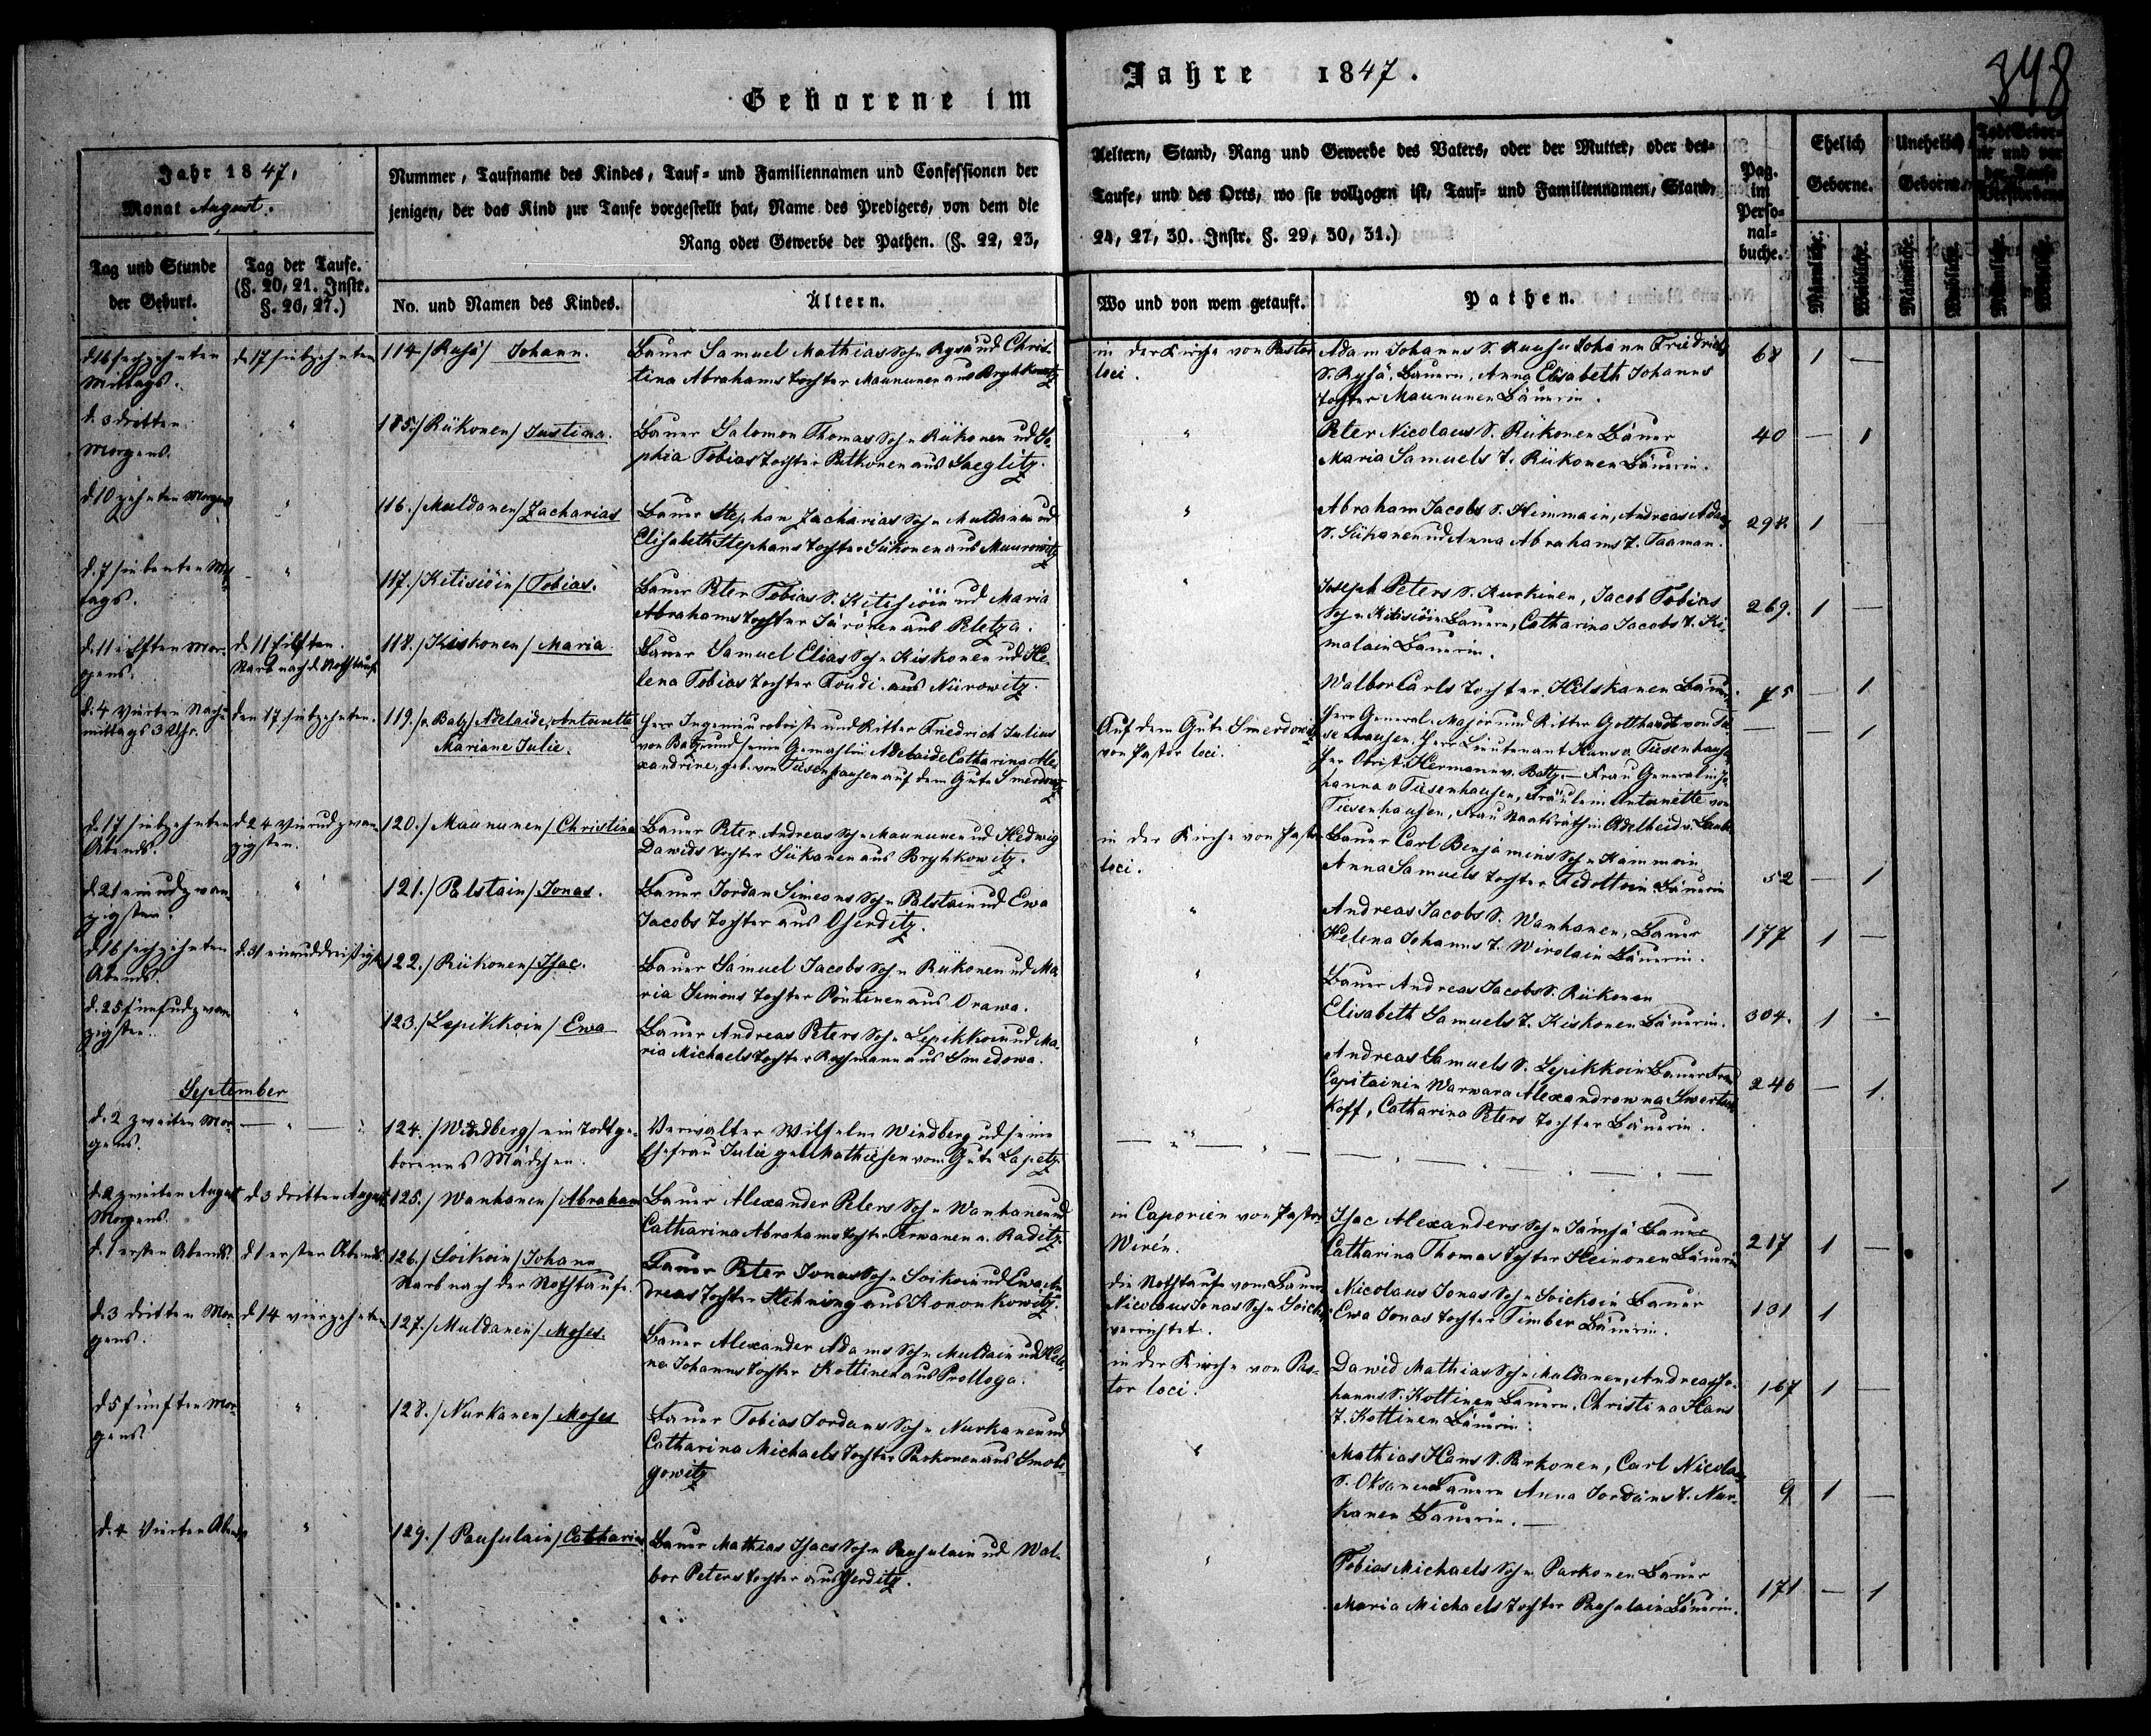 Geborene im
Jahre 1847.
348
Jahr 1847.
Monat August.
Tag und Stunde
der Geburt.
Tag der Taufe.
(§. 20, 21. Instr.
§. 26, 27.)
Nummer, Taufname des Kindes, Tauf- und Familiennamen und Confessionen der
jenigen, der das Kind zur Taufe vorgestellt hat, Name des Predigers, von dem die
Rang oder Gewerbe der Pathen. (§. 22, 23,
No. und Namen des Kindes.
Ältern.
Aeltern, Stand, Rang und Gewerbe des Vaters, oder der Mutter, oder des-
Taufe, und des Orts, wo sie vollzogen ist, Tauf- und Familiennamen, Stand,
24, 27, 30. Instr. §. 29, 30, 31.)
Wo und von wem getauft.
Pathen.
Pag.
im
Perso-
nal-
buche.
Ehelich
Geborne.
Unehelich
Geborne.
Männliche.
Weibliche.
Männliche.
Weibliche.
Männliche.
Weibliche.
d 16 sechzehnten
Mittags.
d. 17 siebzehnten
114./ Johann.
Bauer Samuel Mathias Sohn Rysä ud Chris-
tina Abrahams Tochter Maununen aus
in der Kirche von Pastor
loci.
Adam Johanns S. Johann Friedrichs
S. Rysä, Bauern, Anna Elisabeth Johanns
Tochter Maununen Bäuerin.
68 1 —
d. 3 dritten
Morgens.
"
115./ Rükonen/ Justina.
Bauer Salomon Thomas Sohn Rükonen ud So
phia Tobias Tochter Putkonen aus Saeglitz.
"
Peter Nicolaus S. Rükonen Bauer
Maria Samuels T. Rükonen Bäuerin.
40 — 1
d. 10 zehnten Morgens
"
116./ Muldanen/ Zacharias
Bauer Stephan Zacharias Sohn Muldanen ud
Elisabeth Stephans Tochter Sükonen aus Muurowitz
"
Abraham Jacobs S. Himmain, Andreas Adams
S. Sükanen ud Anna Abrahams T. Taaman.
298 1 —
d. 7 siebenten Mit
tags.
"
117./ Kitisiöin/ Tobias.
Bauer Peter Tobias S. Kitisiöin ud Maria
Abrahams Tochter Särönen aus Peletza.
"
Joseph Peters S. Kurkinen, Jacob Tobias
Sohn Kitisiöin Bauern, Catharina Jacobs T. Ki-
malain Bäuerin.
269. 1 —
d. 11 eilften Mor-
gens.
d. 11 eilften.
Starb nach d. Nothtaufe
118./ Kiskonen/ Maria.
Bauer Samuel Elias Sohn Kiskonen ud He-
lena Tobias Tochter Toudi aus Nürowitz.
Walbor Carls Tochter Hilskanen Bäuer.
75 — 1
d. 4 vierten Nach-
mittags 3 Uhr.
den 17 siebzehnten.
119./ v. Batz/ Adelaide, Antoinette
Mariane Julie.
Herr Ingenieurobrister und Ritter Friedrich Julius
von Batz und seine Gemahlin Adelaide Catharina Ale-
xandrine, geb. von Tiesenhausen auf dem Gute Smerdowitz
Auf dem Gute Smerdowitz
von Pastor loci.
Herr General-Major und Ritter Gotthardt von Tie-
senhausen, Herr Lieutenant Hans v. Tiesenhausen
Herr Obrist Hermann v. Batz — Frau Generalin Jo-
hanna v Tiesenhausen, Fräulein Antoinette von
Tiesenhausen, Frau Staatsräthin Adelheid v.
— — 1
d. 17 siebzehnten
Abends.
d 24 vierudzwan-
zigsten.
120./ Maununen/ Christina
Bauer Peter Andreas Sohn Maununen ud Hedwig
Dawids Tochter Sükanen aus Bryhkowitz.
in der Kirche von Pastor
loci.
Bauer Carl Benjamins Sohn Kammain
Anna Samuels Tochter Fedottoin Bäuerin
52 — 1
d. 21 einudzwan
zigsten.
"
121./ Palstain/ Jonas.
Bauer Jordan Simeons Sohn Palstain ud Ewa
Jacobs Tochter aus Oserditz.
"
Andreas Jacobs S. Wanhanen, Bauer
Helena Johanns T. Wirolain Bäuerin.
177 1 —
d 16 sechzehnten
Abends.
d. 31 einuddreißigst
122./ Rükonen/ Isac.
Bauer Samuel Jacobs Sohn Rükonen ud Ma
ria Simons Tochter Pöntinen aus Orawa.
"
Bauer Andreas Jacobs S. Rükonen
Elisabeth Samuels T. Kiskonen Bäuerin.
304. 1 —
d. 25 fünfudzwan
zigsten.
"
123./ Lepikkoin/ Ewa
Bauer Andreas Peters Sohn Lepikkoin ud Ma-
ria Michaels Tochter aus Smedowa.
"
Andreas Samuels S. Lepikkoin Bauer Frau
Capitainin Warwara Alexandrowna
koff, Catharina Peters Tochter Bäuerin.
246 — 1.
September
d. 2 zweiten Mor-
gens.
— " —
124./ Windberg/ ein Todtge-
borenes Mädchen.
Verwalter Wilhelm Windberg ud seine
Ehefrau Julie geb. Mathiesen vom Gute Lapetz
— " —
— " — " —
1
d. 2 zweiten August
Morgens.
d. 3 dritten August
125./ Wanhanen/ Abraham
Bauer Alexander Peters Sohn Wanhanen ud
Catharina Abrahams Tochter Terwanen a. Raditz
in Caporien von Pastor
Wirén.
Isac Alexanders Sohn Jämsä Bauer
Catharina Thomas Tochter Heinonen Bäuerin
217 1 —
d. 1 ersten Abends.
d 1 ersten Abends.
126./ Soikoin/ Johann
Starb nach der Nothtaufe.
Bauer Peter Jonas Sohn Soikoin ud Ewa An
dreas Tochter Hehning aus Kononkowitz.
die Nothtaufe vom Bauer
Nicolaus Jonas Sohn Soick.
verrichtet.
Nicolaus Jonas Sohn Soickoin Bauer
Ewa Jonas Tochter Timber Bäuerin.
131 1
d. 3 dritten Mor-
gens.
d 14 vierzehnten
127./ Muldanen/ Moses.
Bauer Alexander Adams Sohn Muldain ud Hele-
na Johanns Tochter Kottinen aus Prolloga.
in der Kirche von Pas-
tor loci.
Dawid Mathias Sohn Muldanen, Andreas Jo-
hanns S. Kottinen Bauern, Christina Hans
T. Kottinen Bäuerin.
167 1 —
d 5 fünften Mor-
gens.
"
128./ Nurkanen/ Moses
Bauer Tobias Jordans Sohn Nurkanen ud
Catharina Michaels Tochter Parkonen aus Smole-
gowitz
"
Mathias Hans S. Parkonen, Carl Nicolaus
S. Oksanen Bauern Anna Jordans T. Nur-
kanen Bäuerin. —
9 1 —
d. 4 vierten Abends
"
129./ Pausulain/ Catharina
Bauer Mathias Isacs Sohn Pausulain ud Wal-
bor Peters Tochter aus Oserditz.
"
Tobias Michaels Sohn Parkonen Bauer
Maria Michaels Tochter Pausulain Bäuerin.
171 — 1